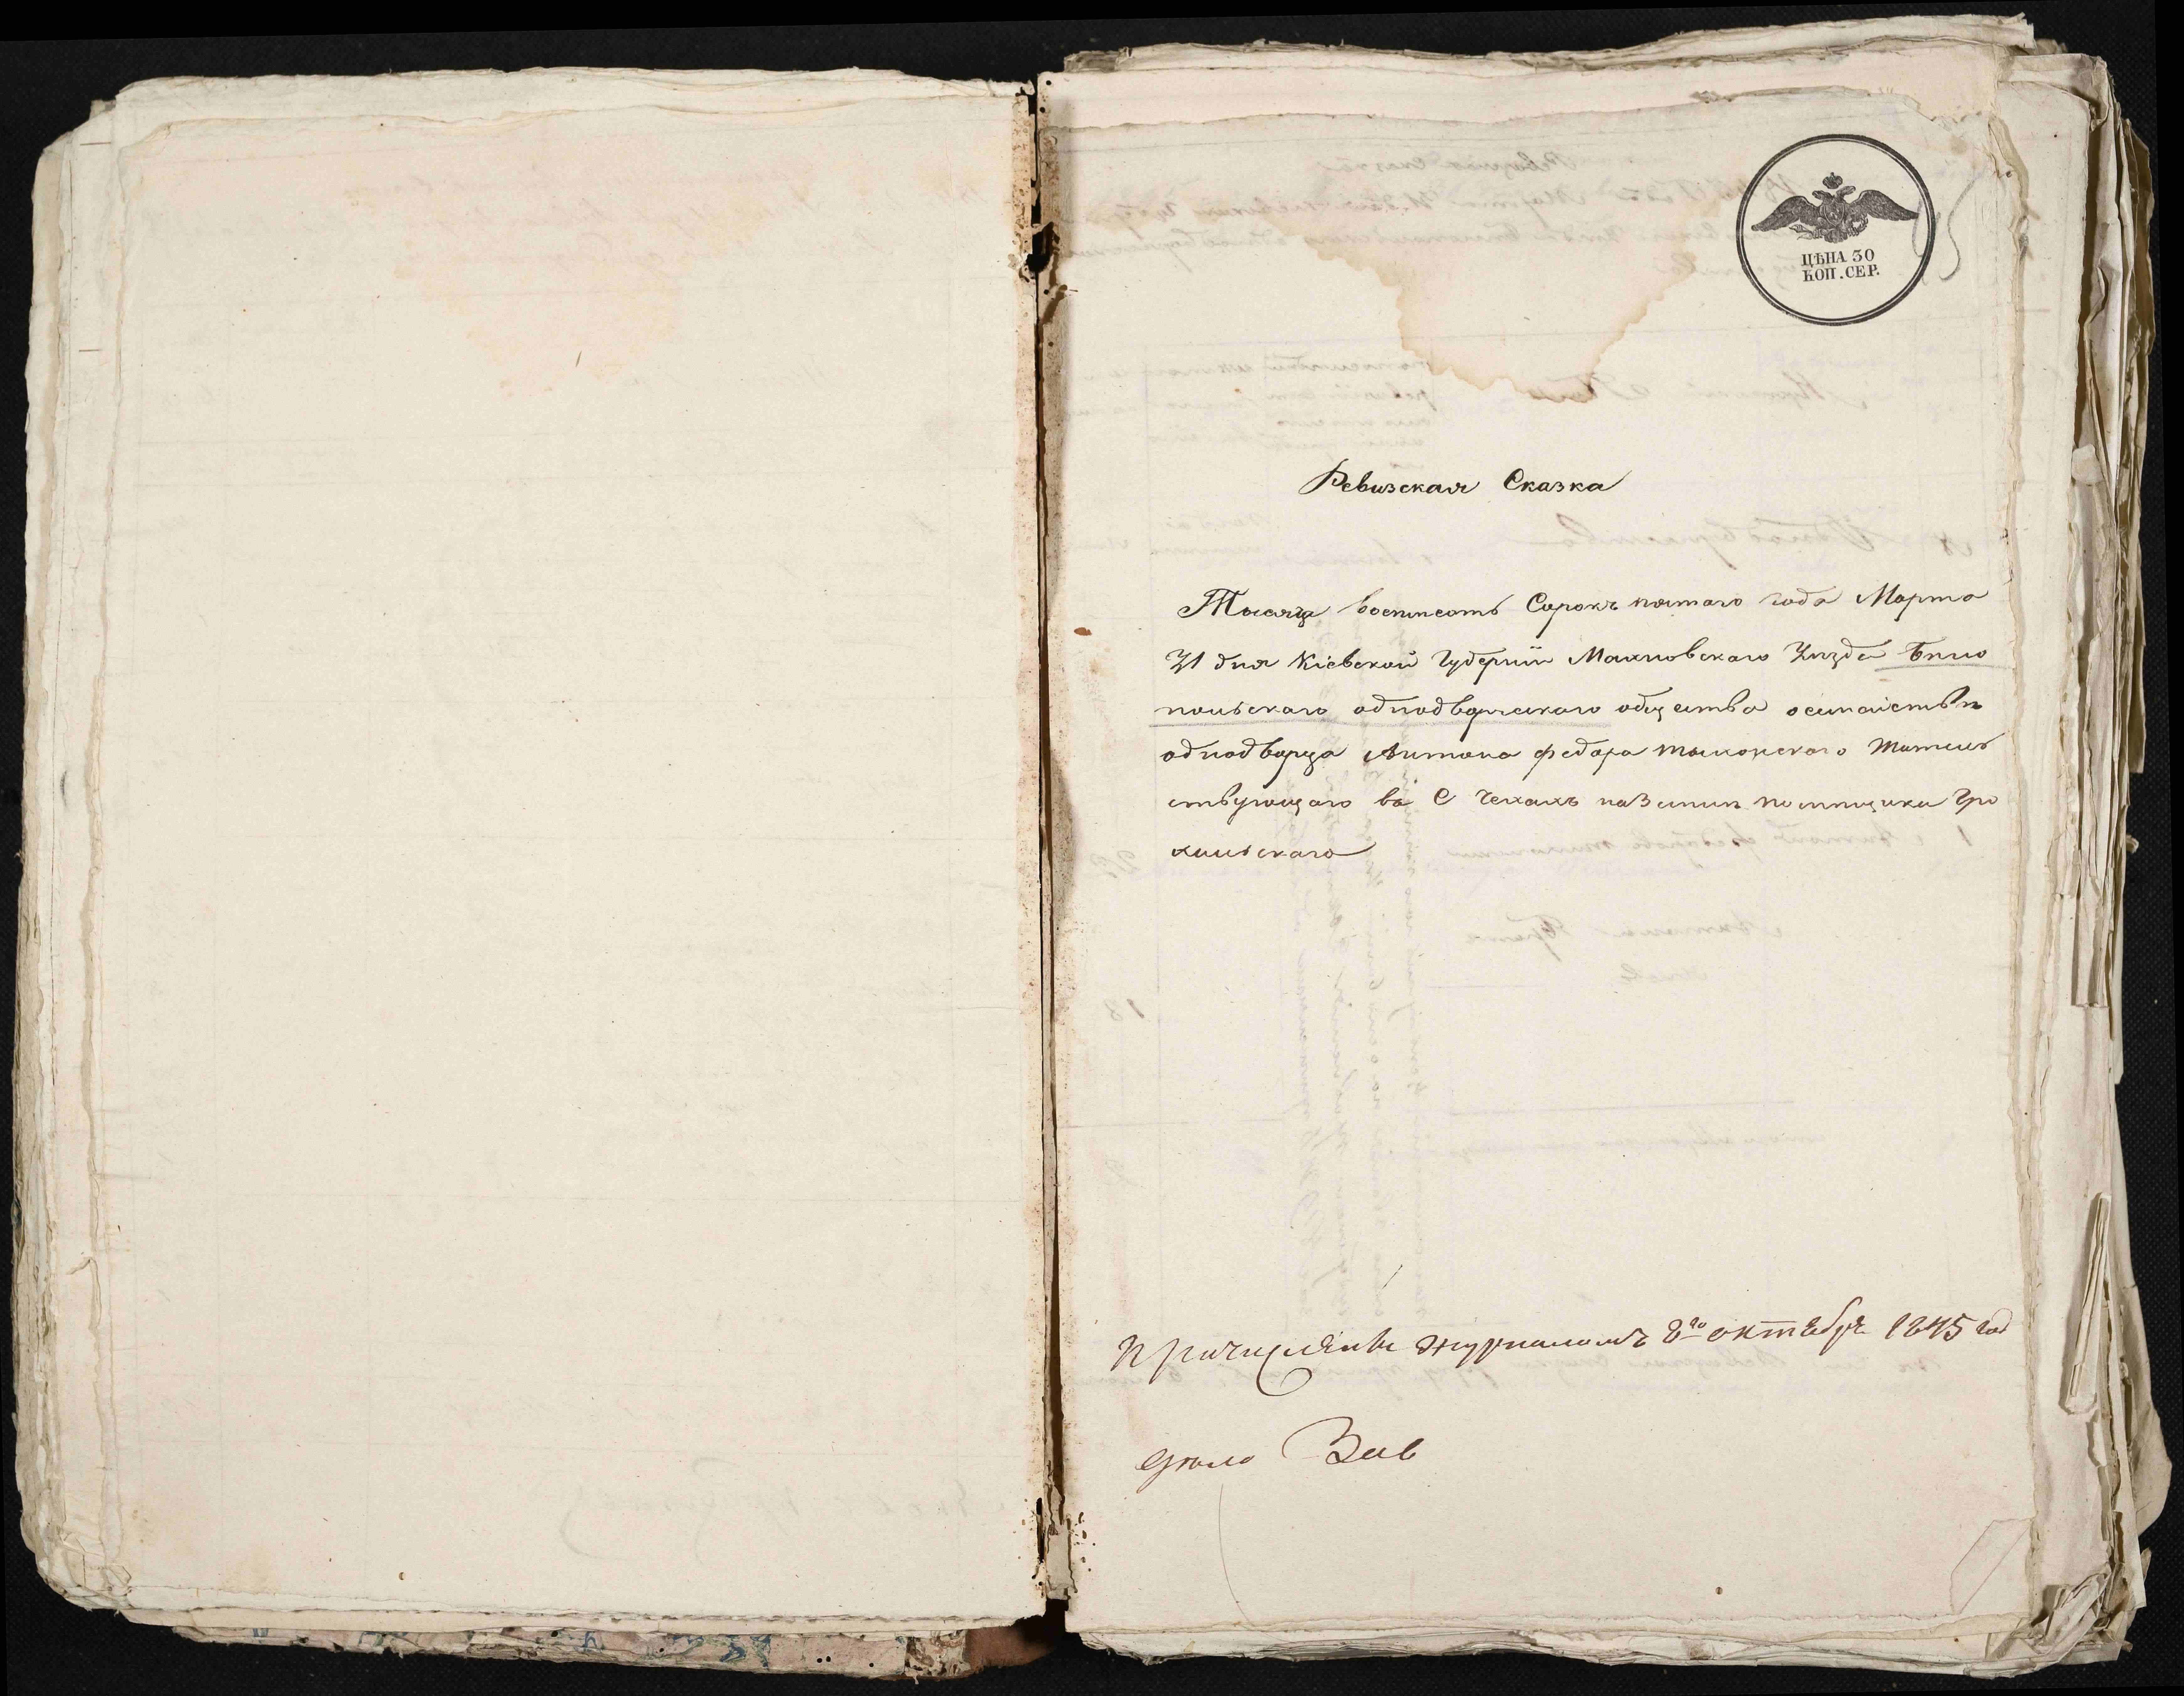 ЦѢНА 30
КОП. СЕР.
Ревизская Сказка
Тысяча восемсотъ Сорокъ пятаго года Марта
31 дня Кіевской Губерніи Махновскаго Уѣзда Бѣло
польскаго однодворческаго общества о семействѣ
однодворца Антона федора житель
ствующаго въ С Чехахъ на Земли помѣщика Гро
хольскаго
Причисленъ журналомъ 8го октября 1845 год
дѣло